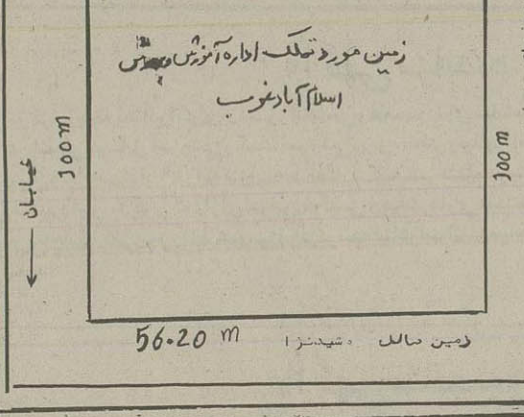 زمین مورد تملک اداره آموزش و پرورش
اسلام آباد غرب
100 m
100 m
خیابان
56.20 m
زمین مالک